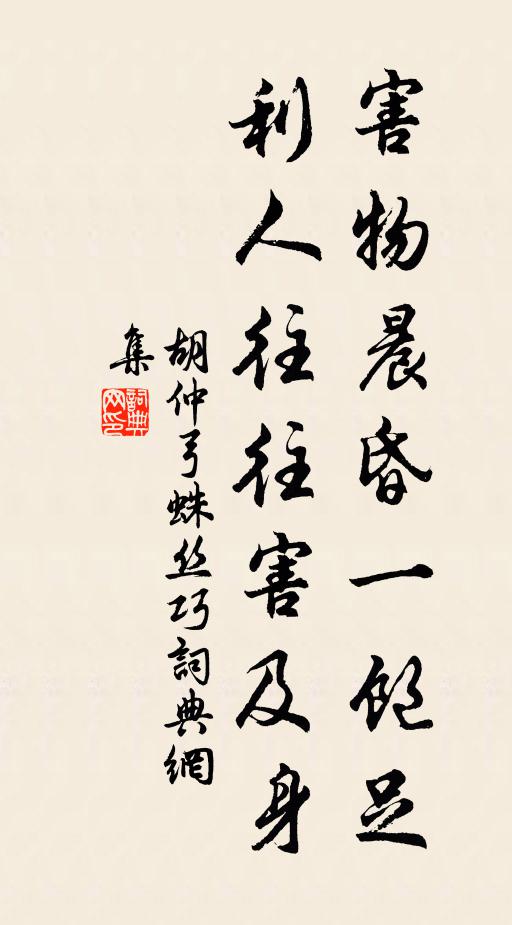 害物晨昏一饱足
利人往往害及身
胡仲弓蛛丝巧詞典網
集
詞典网印